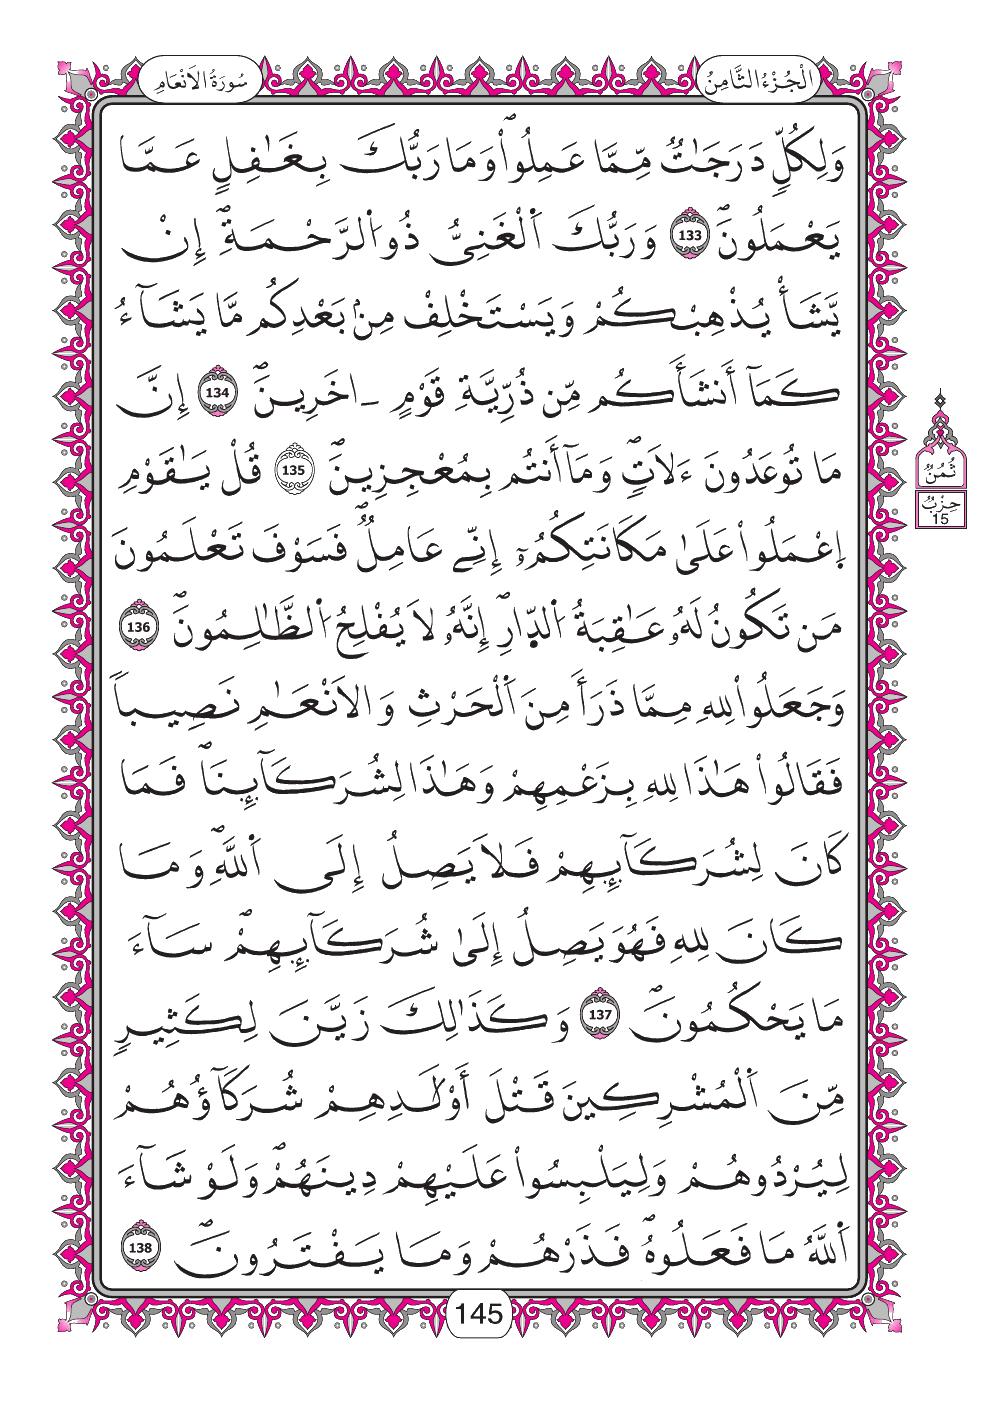 سُورَةُ الْأَنْعَامِ
الْجُزْءُ الثَّامِنُ
وَلِكُلّٖ دَرَجَٰتٞ مِّمَّا عَمِلُواْۖ وَمَا رَبُّكَ بِغَٰفِلٍ عَمَّا
يَعْمَلُونَۖ 133 وَرَبُّكَ اَ۬لْغَنِيُّ ذُو اُ۬لرَّحْمَةِۖ إِنْ
يَّشَأْ يُذْهِبْكُمْ وَيَسْتَخْلِفْ مِنۢ بَعْدِكُم مَّا يَشَآءُ
كَمَآ أَنشَأَكُم مِّن ذُرِّيَّةِ قَوْمٍ ـ اخَرِينَۖ 134 إِنَّ
مَا تُوعَدُونَ ءَلَاتٖۖ وَمَآ أَنتُم بِمُعْجِزِينَۖ 135 قُلْ يَٰقَوْمِ
ثُمُنُ
حِزْبُ
15
اِ۪عْمَلُواْ عَلَىٰ مَكَانَتِكُمُۥٓ إِنِّے عَامِلٞۖ فَسَوْفَ تَعْلَمُونَ
مَن تَكُونُ لَهُۥ عَٰقِبَةُ اُ۬لدّ۪ارِۖ إِنَّهُۥ لَا يُفْلِحُ اُ۬لظَّٰلِمُونَۖ 136
وَجَعَلُواْ لِلهِ مِمَّا ذَرَأَ مِنَ اَ۬لْحَرْثِ وَالَانْعَٰمِ نَصِيباٗ
فَقَالُواْ هَٰذَا لِلهِ بِزَعْمِهِمْ وَهَٰذَا لِشُرَكَآئِنَاۖ فَمَا
كَانَ لِشُرَكَآئِهِمْ فَلَا يَصِلُ إِلَى اَ۬للَّهِۖ وَمَا
كَانَ لِلهِ فَهُوَ يَصِلُ إِلَىٰ شُرَكَآئِهِمْۖ سَآءَ
مَا يَحْكُمُونَۖ 137 وَكَذَٰلِكَ زَيَّنَ لِكَثِيرٖ
مِّنَ اَ۬لْمُشْرِكِينَ قَتْلَ أَوْلَٰدِهِمْ شُرَكَآؤُهُمْ
لِيُرْدُوهُمْ وَلِيَلْبِسُواْ عَلَيْهِمْ دِينَهُمْۖ وَلَوْ شَآءَ
اَ۬للَّهُ مَا فَعَلُوهُۖ فَذَرْهُمْ وَمَا يَفْتَرُونَۖ 138
145